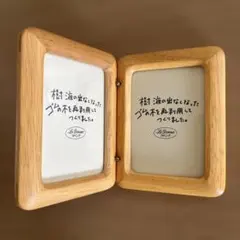 樹液の出なくなった
ゴムの木を再利用して
つくりました。
樹液の出なくなった
ゴムの木を再利用して
つくりました。